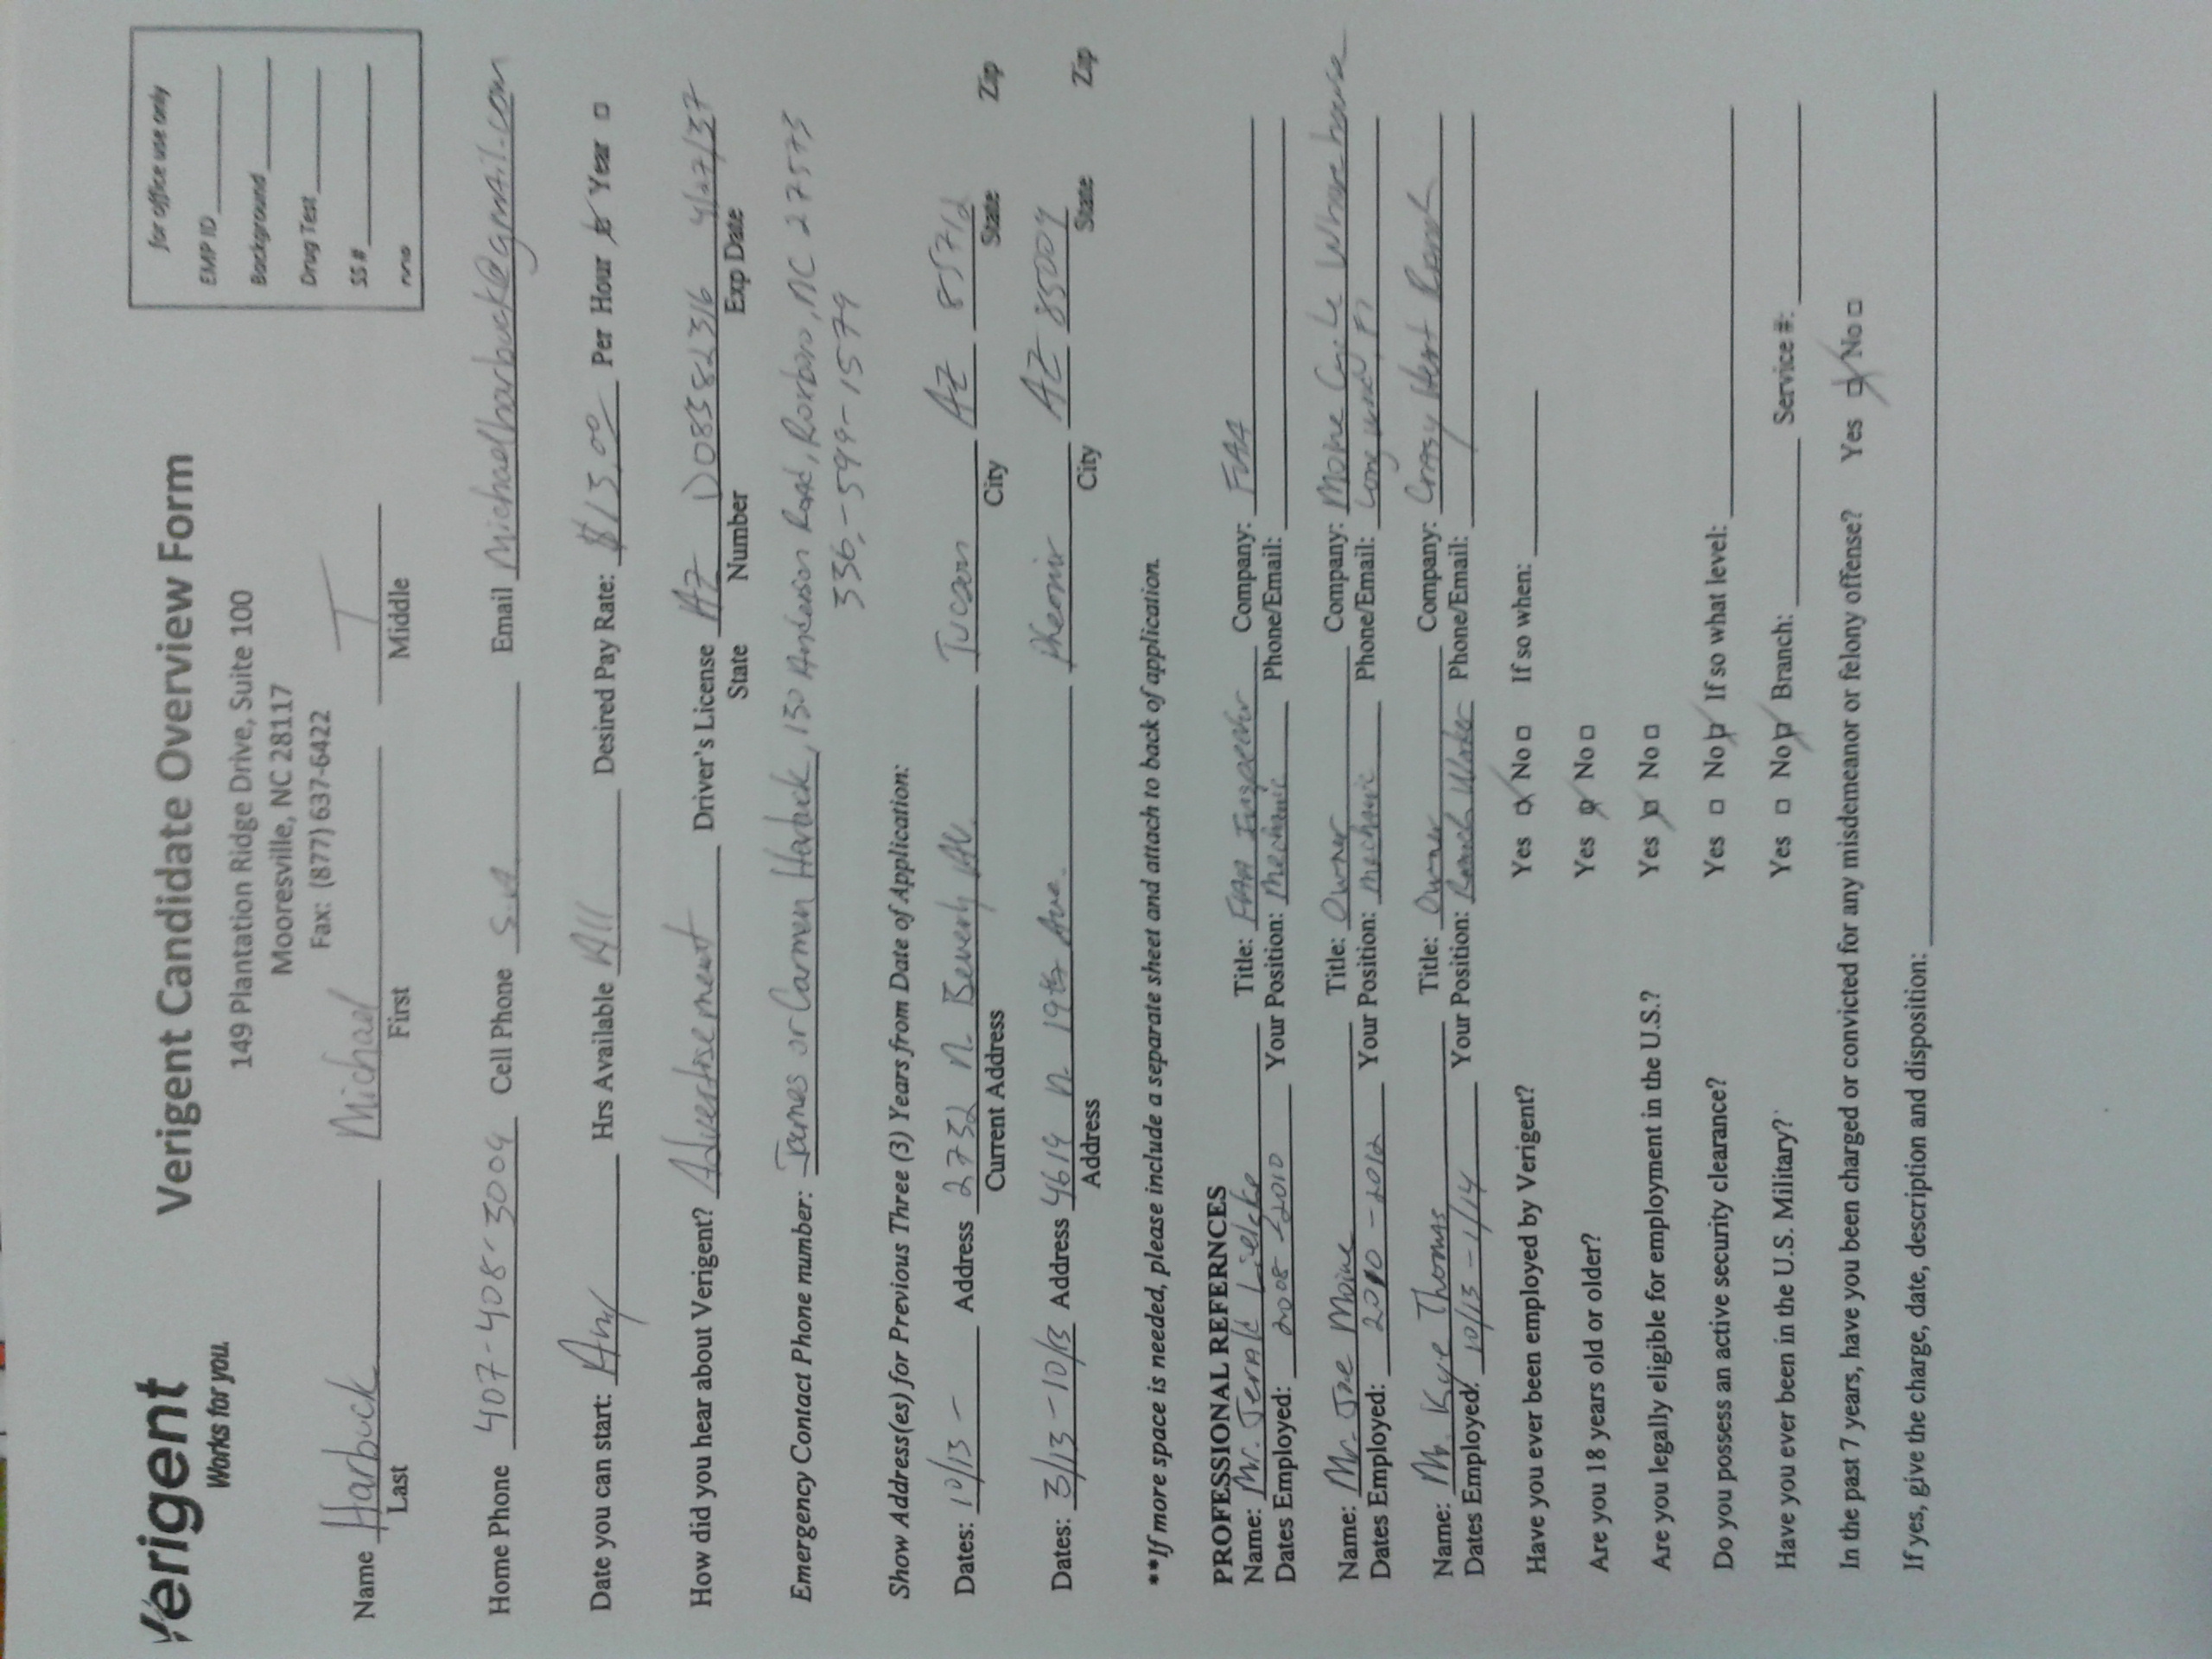 Verigent
Works for you.
Verigent Candidate Overview Form
149 Plantation Ridge Drive, Suite 100
Mooresville, NC 28117
Fax: (877) 637-6422
for office use only
EMP ID
Background
Drug Test
SS #
Name Harbuck Michael T
Last First Middle
Home Phone 407-408-3009 Cell Phone S.A Email Michaelharbuck@gmail.com
Date you can start: Any Hrs Available All Desired Pay Rate: $13.00 Per Hour Year
How did you hear about Verigent? Advertisement Driver's License AZ D083582316 4/27/37
State Number Exp Date
Emergency Contact Phone number: James or Carmen Harbuck, 150 Anderson Road, Roxboro, NC 27573
336-599-1579
Show Address(es) for Previous Three (3) Years from Date of Application:
Dates: 10/13 - Address 2732 N. Beverly AV. Tucson AZ 85712
Current Address City State Zip
Dates: 3/13-10/13 Address 4619 N. 19th Ave. Pheonix AZ 85009
Address City State Zip
**If more space is needed, please include a separate sheet and attach to back of application.
PROFESSIONAL REFERNCES
Name: Mr. Jerald Title: FAA Inspector Company: FAA
Dates Employed: 2008-2010 Your Position: Mechanic Phone/Email:
Name: Mr. Joe Moine Title: Owner Company: Moine Cycle Wharehouse
Dates Employed: 2010-2012 Your Position: Mechanic Phone/Email: Longwood, Fl
Name: Mr. Kye Thomas Title: Owner Company: Crasy Hert Ranch
Dates Employed: 10/13-1/14 Your Position: Ranch Worker Phone/Email:
Have you ever been employed by Verigent? Yes No If so when:
Are you 18 years old or older? Yes No
Are you legally eligible for employment in the U.S.? Yes No
Do you possess an active security clearance? Yes No If so what level:
Have you ever been in the U.S. Military? Yes No Branch: Service #:
In the past 7 years, have you been charged or convicted for any misdemeanor or felony offense? Yes No
If yes, give the charge, date, description and disposition: